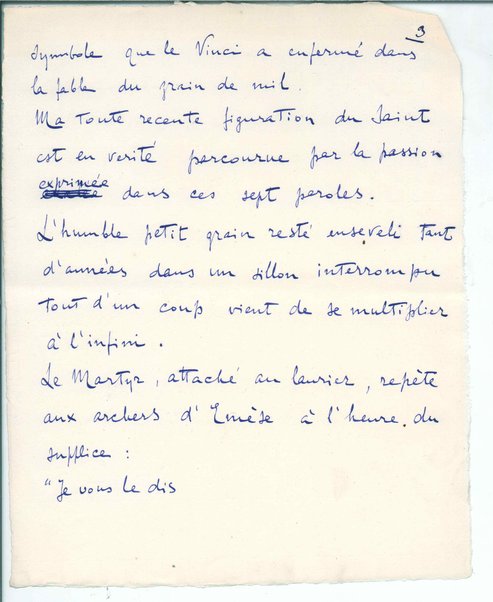 3
symbole que le Vinci a enfermé dans
la fable du grain de mil.
Ma toute recente figuration du Saint
est en verité parcourue par la passion
exprimée
dans ces sept paroles.
L'humble petit grain resté enseveli tant
d'années dans un sillon interrompu
tout d'un coup vient de se multiplier
à l'infini.
Le Martyr, attaché au laurier, repète
aux archers d'Emèse à l'heure du
supplice :
"Je vous le dis